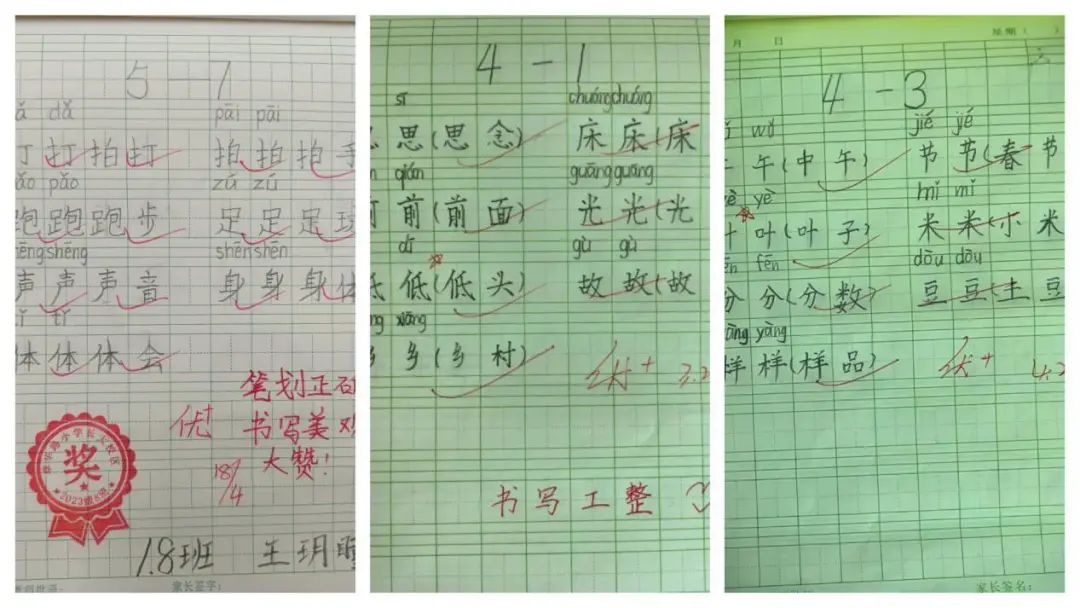 5-1
dǎ pāi pāi
打打拍打 拍拍拍手
pǎo pǎo zú zú
跑跑跑步 足足足球
shēng shēng shēn shēn
声声声音 身身身体
tǐ tǐ
体体体会
笔划正确
优+ 书写美观
大赞!
18/4
奖
2023级8班
1.8班 王玥
家长签字:
4-1
sī chuáng chuáng
思(思念) 床床(床
qián guāng guāng
前(前面) 光光(光
dī gù gù
低低(低头) 故故(故
xiāng
乡(乡村)
优+ 3.2
书写工整
4-3
月 日 星期( )
六
wǔ jié jié
午(中午) 节节(春节
yè yè mǐ mǐ
叶叶(叶子) 米米(小米
fēn fēn dòu dòu
分分(分数) 豆豆(土豆
yàng yàng
样样(样品)
优+ 4.2
家长签名: